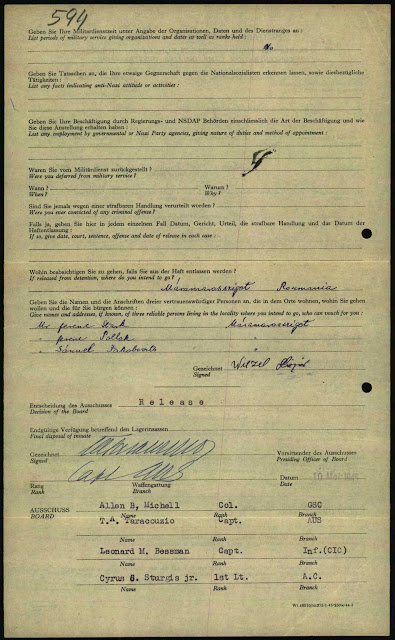 594
Geben Sie Ihre Militärdienstzeit unter Angabe der Organisationen, Daten und des Dienstranges an :
List periods of military service giving organisations and dates as well as ranks held :
No
Geben Sie Tatsachen an, die Ihre etwaige Gegnerschaft gegen die Nationalsozialisten erkennen lassen, sowie diesbezügliche
Tätigkeiten :
List any facts indicating anti-Nazi attitude or activities :
Geben Sie Ihre Beschäftigung durch Regierungs- und NSDAP Behörden einschliesslich die Art der Beschäftigung und wie
Sie diese Anstellung erhalten haben :
List any employment by governmental or Nazi Party agencies, giving nature of duties and method of appointment :
Waren Sie vom Militärdienst zurückgestellt ?
Were you deferred from military service ?
Wann ?
Warum ?
When ?
Why ?
Sind Sie jemals wegen einer strafbaren Handlung verurteilt worden ?
Were you ever convicted of any criminal offense ?
Falls ja, geben Sie hier in jedem einzelnen Fall Datum, Gericht, Urteil, die strafbare Handlung und das Datum der
Haftentlassung :
If so, give date, court, sentence, offense and date of release in each case :
Wohin beabsichtigen Sie zu gehen, falls Sie aus der Haft entlassen werden ?
If released from detention, where do you intend to go ?
Máramarosszigot Roumania
Geben Sie die Namen und die Anschriften dreier vertrauenswürdiger Personen an, die in dem Orte wohnen, wohin Sie gehen
wollen und die für Sie bürgen können :
Give names and addresses, if known, of three reliable persons living in the locality where you intend to go, who can vouch for you :
Mr ferenc Máramarosszigot
" ferenc Pollak "
" Sámuel Jakobovits "
Gezeichnet
Signed
Entscheidung des Ausschusses
Decision of the Board
Release
Endgültige Verfügung betreffend den Lagerinsassen
Final disposal of inmate
Gezeichnet
Signed
Vorsitzender des Ausschusses
Presiding Officer of Board
Capt AUS
Rang
Rank
Waffengattung
Branch
Datum
Date
AUSSCHUSS
BOARD
Allen B, Michell Col. GSC
Name Rank Branch
T.A. Taracouzio Capt. AUS
Name Rank Branch
Leonard M. Bessman Capt. Inf.(CIC)
Name Rank Branch
Cyrus S. Sturgis jr. 1st Lt. A.C.
Name Rank Branch